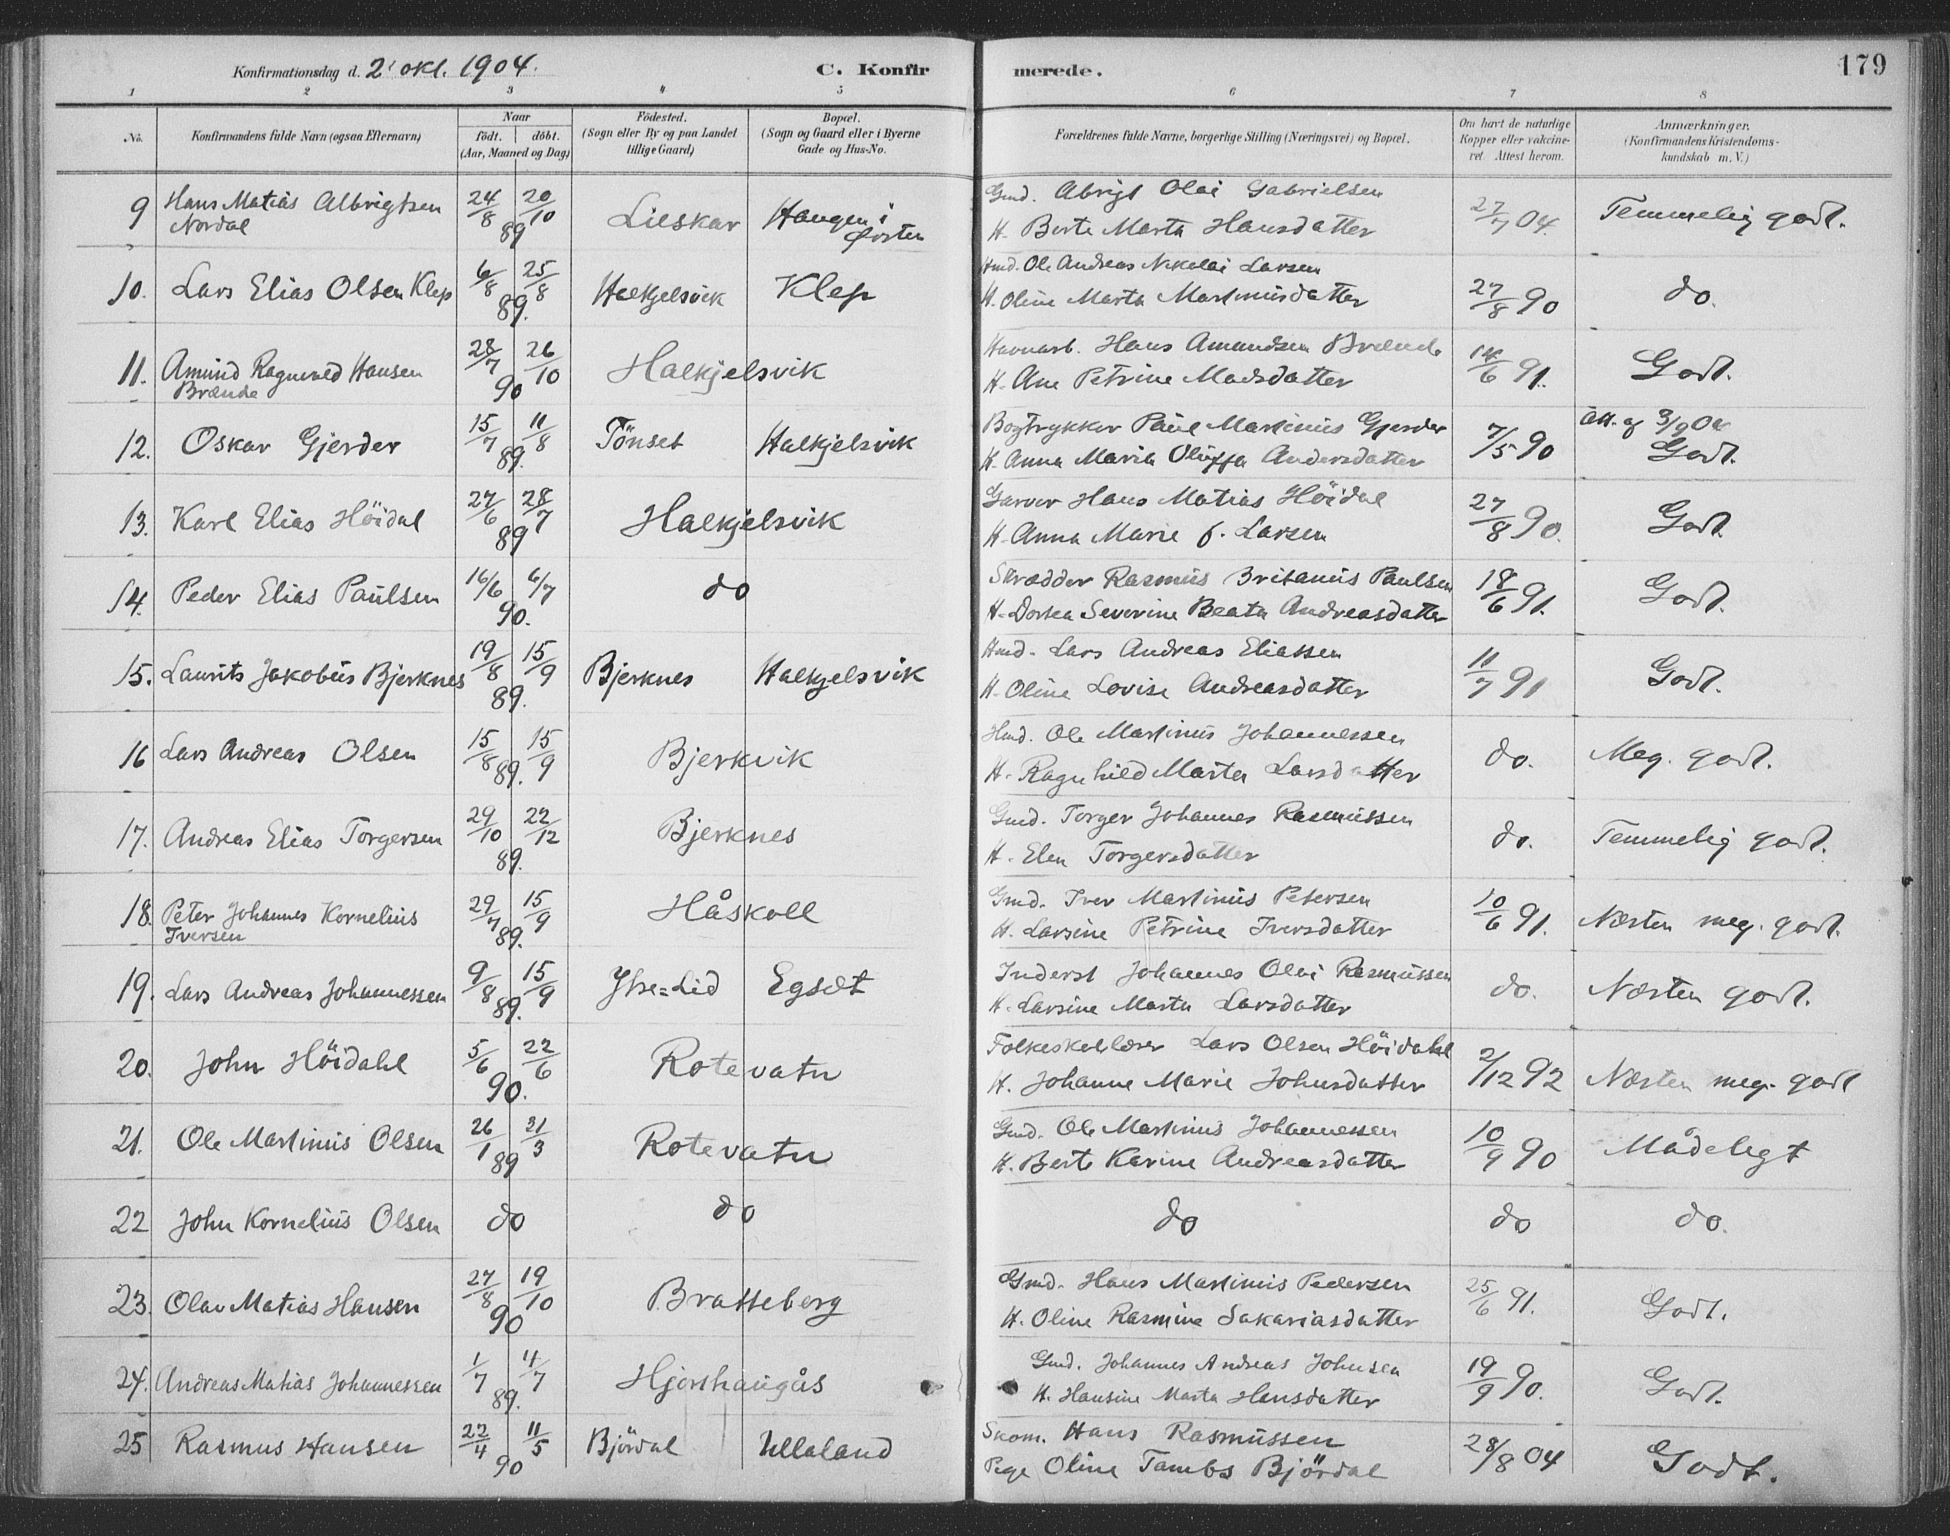 Konfirmationsdag d. 2' okt. 1904. C. Konfirmerede. 179
1 2 3 4 5 6 7 8
No. Konfirmandens fulde Navn (ogsaa Efternavn) Naar födt. döbt. (Aar, Maaned og Dag) Födested. (Sogn eller By og paa Landet tillige Gaard) Bopæl. (Sogn og Gaard eller i Byerne Gade og Hus-No. Forældrenes fulde Navne, borgerlige Stilling (Næringsvei) og Bopæl. Om havt de naturlige Kopper eller vakcineret. Attest herom. Anmærkninger. (Konfirmandens Kristendomskundskab m. V.)
9 Hans Matias Albrigtsen 24/8 20/10 Lieskar Haugen i Gmd. Abrigt Olai Gabrielsen 27/7 04 Temmelig godt.
Nordal 89 Ørsten H. Berte Marta Hansdatter
10. Lars Elias Olsen Klep 6/8 25/8 Halkjelsvik Klep Hmd. Ole Andreas Nikolai Larsen 27/8 90 do.
89. H. Oline Marta Martinusdatter
11. Amund Ragnvald Hansen 28/7 26/10 Halkjelsvik Havnarb. Hans Amundsen Brænde 14/6 91. Godt.
Brænde 90 H. Ane Petrine Madsdatter
12. Oskar Gjerder 15/7 11/8 Tönset Halkjelsvik Bogtrykker Paul Martinus Gjerder 7/5 90 Att. af 3/9 04
89. H. Anna Maria Oluffa Andersdatter Godt.
13. Karl Elias Höidal 27/6 28/7 Halkjelsvik Garver Hans Matias Höidal 27/8 90. Godt
89 H. Anna Marie f. Larsen
14. Peder Elias Paulsen 16/6 6/7 do Skrædder Rasmus Britanus Paulsen 18/6 91. Godt.
90. H. Dortea Severine Beata Andreasdatter
15. Laurits Jakobus Bjerknes 19/8 15/9 Bjerknes Halkjelsvik Hmd. Lars Andreas Eliassen 11/7 91 Godt.
89. H. Oline Lovise Andreasdatter
16 Lars Andreas Olsen 15/8 15/9 Bjerkvik Hmd. Ole Martinus Johannessen do. Meg. godt.
89. H. Ragnhild Marta Larsdatter
17. Andreas Elias Torgersen 29/10 22/12 Bjerknes Gmd. Torger Johannes Rasmussen do. Temmelig godt.
89. H. Elen Torgersdatter
18. Peter Johannes Kornelius 29/7 15/9 Håskoll Gmd. Iver Martinus Petersen 10/6 91. Næsten meg. godt.
Iversen 89. H. Larsine Petrine Iversdatter
19. Lars Andreas Johannessen 9/8 15/9 Ytre=Lid Egsæt Inderst Johannes Olai Rasmussen do. Næsten godt.
89. H. Larsine Marta Larsdatter
20. John Höidahl 5/6 22/6 Rotevatn Folkeskolelærer Lars Olsen Höidahl 2/12 92 Næsten meg. godt
90. H. Johanne Marie Johnsdatter
21. Ole Martinus Olsen 26/1 31/3 Rotevatn Gmd. Ole Martinus Johannessen 10/9 90 Mådeligt
89 H. Berte Karine Andreasdatter
22 John Kornelius Olsen do do do do do.
23. Olav Matias Hansen 27/8 19/10 Bratteberg Gmd. Hans Martinus Pedersen 25/6 91. Godt.
90 H. Oline Rasmine Sakariasdatter
24. Andreas Matias Johannessen 1/7 11/7 Hjorthaugås Gmd. Johannes Andreas Johnsen 19/9 90. Godt.
89. H. Hansine Marta Hansdatter
25 Rasmus Hansen 22/4 11/5 Björdal Ullaland Snom. Hans Rasmussen 28/8 04 Godt.
90 Pige Oline Tambs Björdal